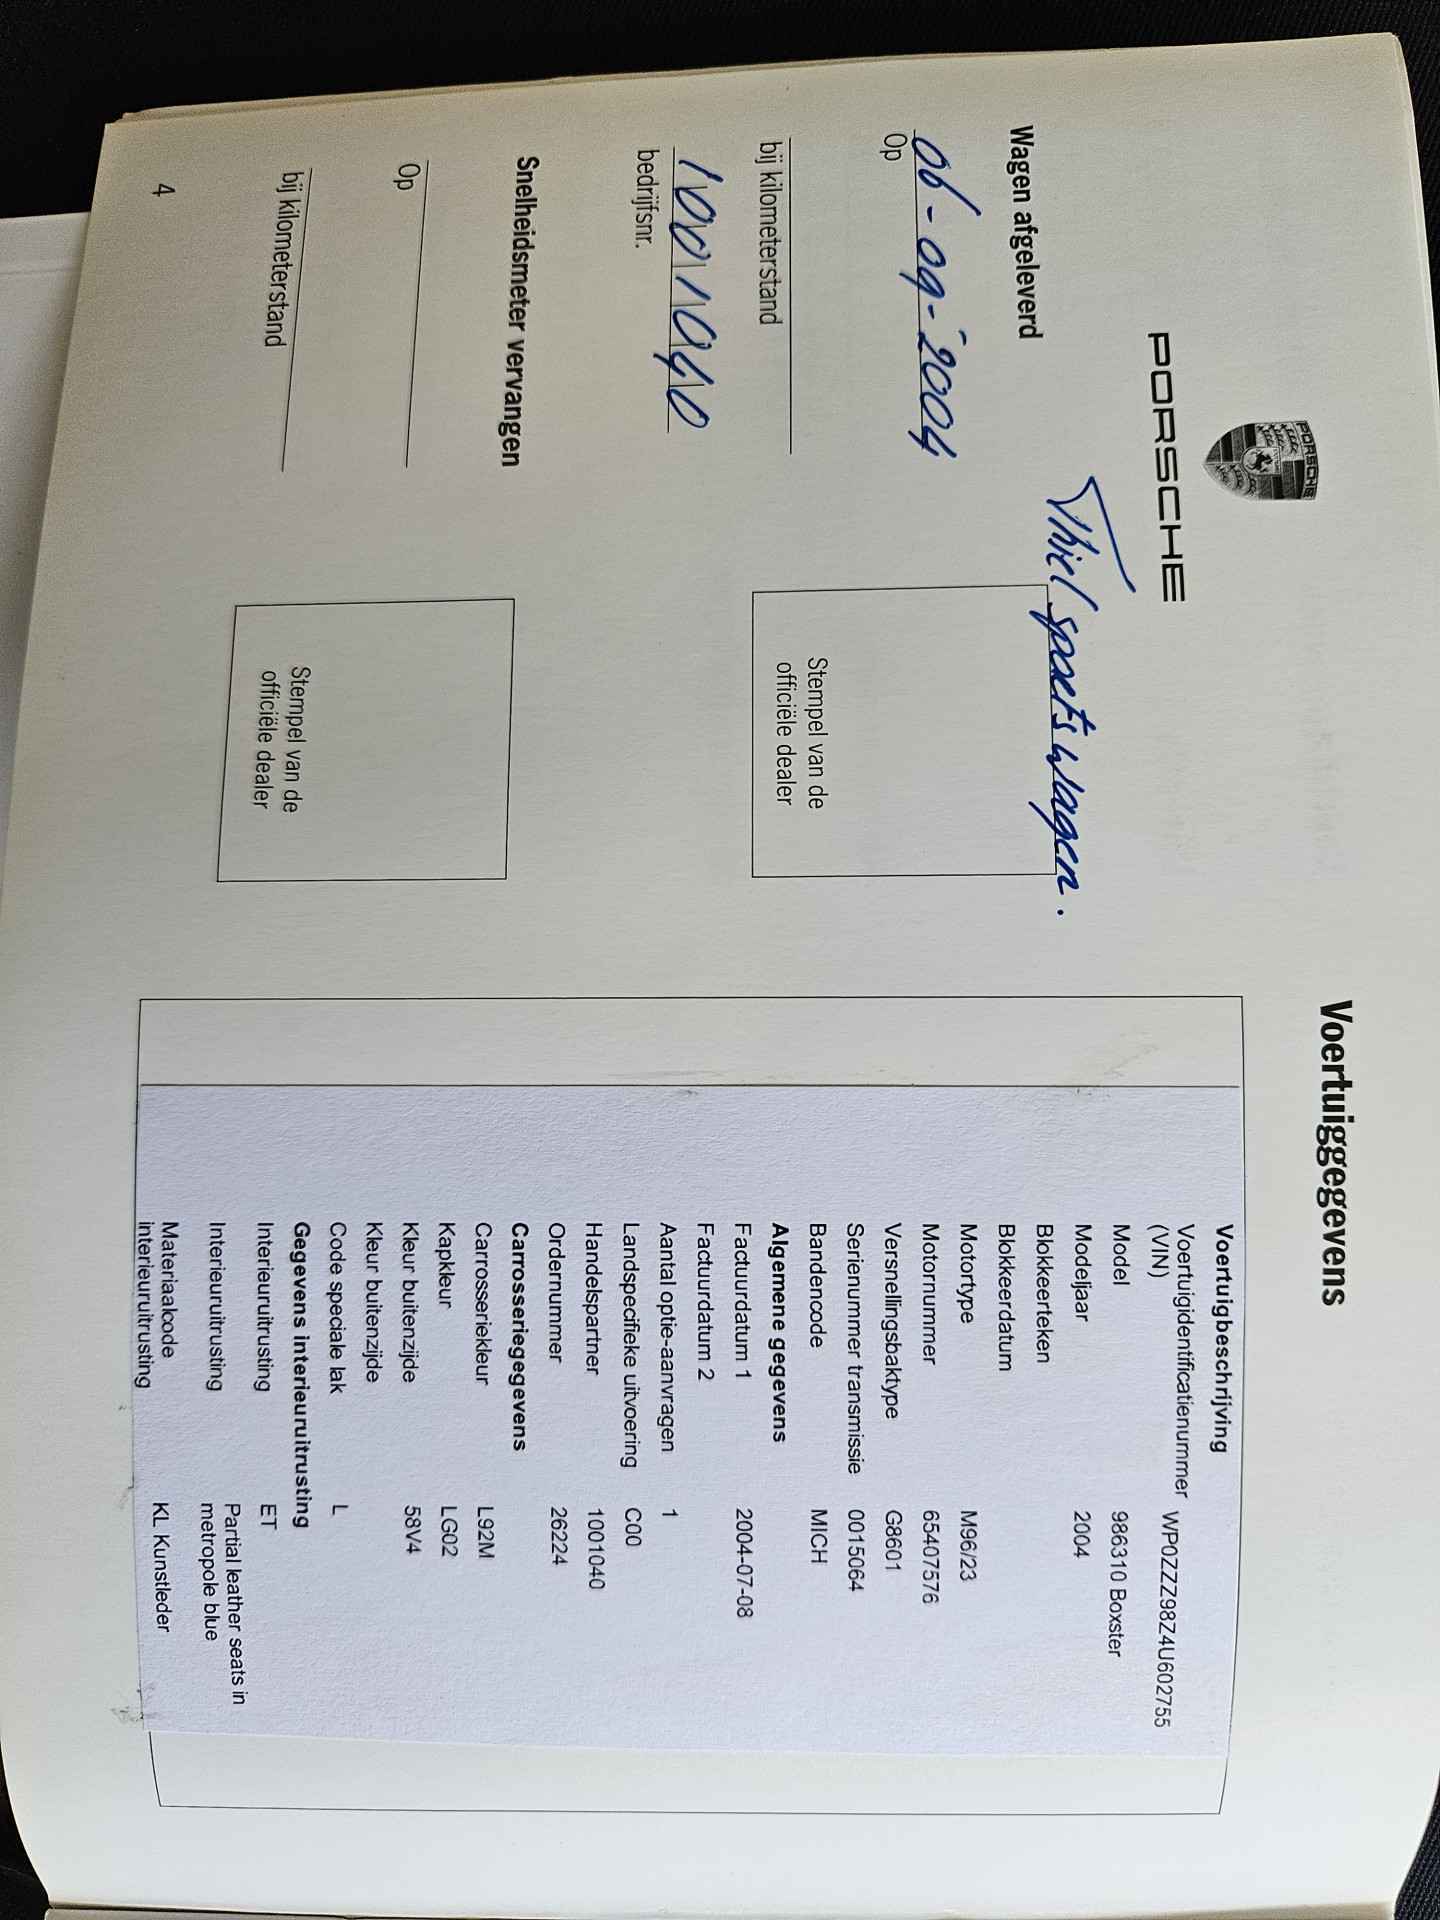 Voertuiggegevens
PORSCHE
PORSCHE
Thiel sportswagen.
Wagen afgeleverd
06-09-2004
Op
bij kilometerstand
1001040
bedrijfsnr.
Stempel van de
officiële dealer
Snelheidsmeter vervangen
Op
bij kilometerstand
Stempel van de
officiële dealer
4
Voertuigbeschrijving
Voertuigidentificatienummer WP0ZZZ98Z4U602755
(VIN)
Model 986310 Boxster
Modeljaar 2004
Blokkeerteken
Blokkeerdatum
Motortype M96/23
Motornummer 65407576
Versnellingsbaktype G8601
Serienummer transmissie 0015064
Bandencode MICH
Algemene gegevens
Factuurdatum 1 2004-07-08
Factuurdatum 2
Aantal optie-aanvragen 1
Landspecifieke uitvoering C00
Handelspartner 1001040
Ordernummer 26224
Carrosseriegegevens
Carrosseriekleur L92M
Kapkleur LG02
Kleur buitenzijde 58V4
Kleur buitenzijde
Code speciale lak L
Gegevens interieuruitrusting
Interieuruitrusting ET
Interieuruitrusting Partial leather seats in
metropole blue
Materiaalcode KL Kunstleder
interieuruitrusting